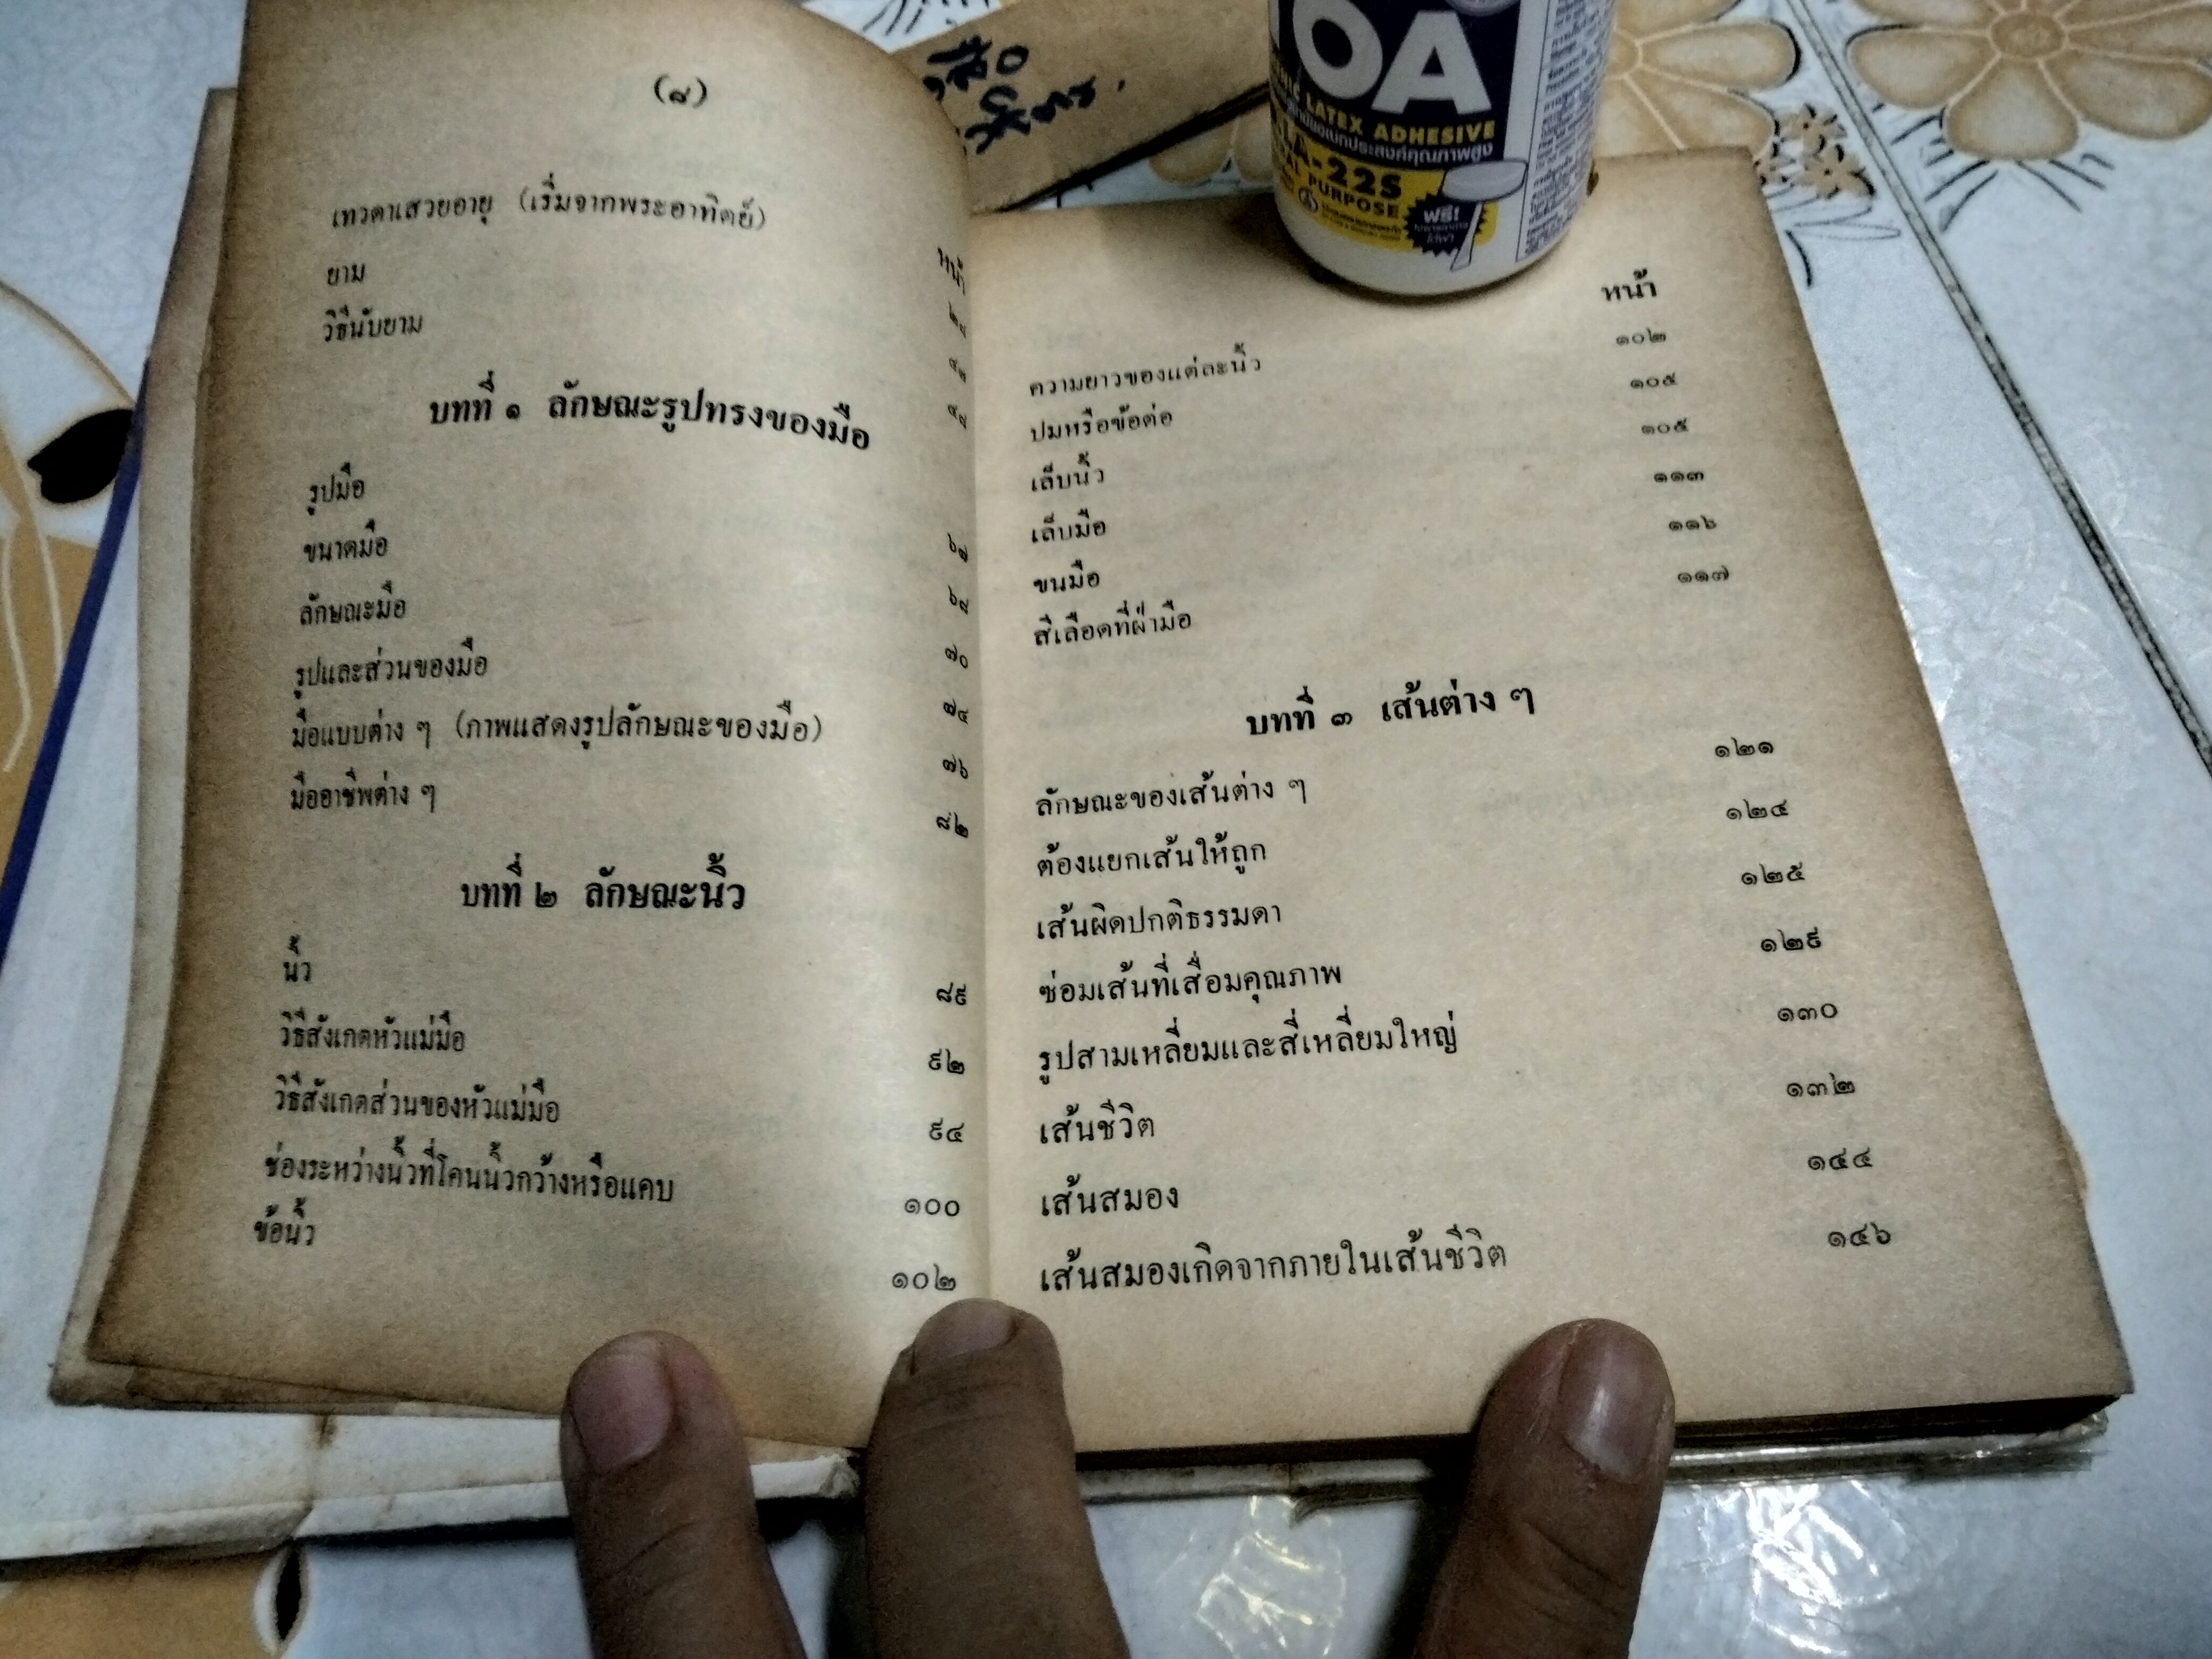 (๘)
หน้า
เทวดาเสวยอายุ (เริ่มจากพระอาทิตย์)
ยาม
วิธีนับยาม
บทที่ ๑ ลักษณะรูปทรงของมือ
รูปมือ
ขนาดมือ
ลักษณะมือ ๗๐
รูปและส่วนของมือ ๗๔
มือแบบต่าง ๆ (ภาพแสดงรูปลักษณะของมือ) ๗๖
มืออาชีพต่าง ๆ ๘๒
บทที่ ๒ ลักษณะนิ้ว
นิ้ว ๘๙
วิธีสังเกตหัวแม่มือ ๙๒
วิธีสังเกตส่วนของหัวแม่มือ ๙๔
ช่องระหว่างนิ้วที่โคนนิ้วกว้างหรือแคบ ๑๐๐
ข้อนิ้ว ๑๐๒
หน้า
ความยาวของแต่ละนิ้ว ๑๐๒
ปมหรือข้อต่อ ๑๐๕
เล็บนิ้ว ๑๐๕
เล็บมือ ๑๑๓
ขนมือ ๑๑๖
สีเลือดที่ฝ่ามือ ๑๑๗
บทที่ ๓ เส้นต่าง ๆ
ลักษณะของเส้นต่าง ๆ ๑๒๑
ต้องแยกเส้นให้ถูก ๑๒๔
เส้นผิดปกติธรรมดา ๑๒๕
ซ่อมเส้นที่เสื่อมคุณภาพ ๑๒๙
รูปสามเหลี่ยมและสี่เหลี่ยมใหญ่ ๑๓๐
เส้นชีวิต ๑๓๒
เส้นสมอง ๑๔๔
เส้นสมองเกิดจากภายในเส้นชีวิต ๑๔๖
OA
LATEX ADHESIVE
อเนกประสงค์คุณภาพสูง
A-22S
PURPOSE
ฟรี!